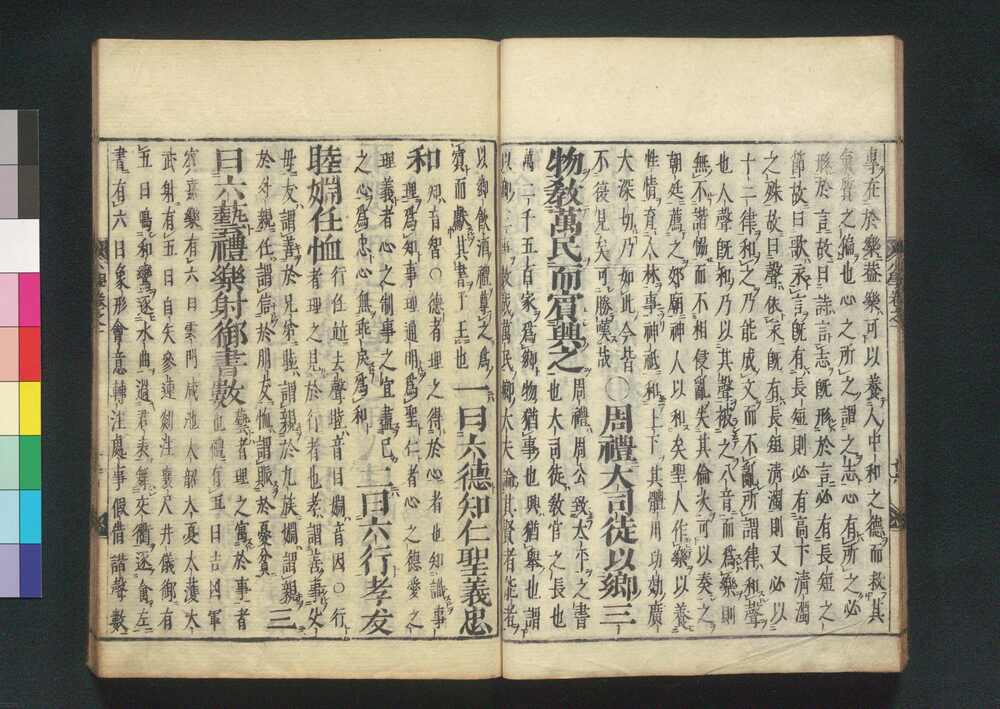 專在於樂蓋樂可以養人中和之德而救其
氣質之偏也心之所之謂之志心有所之必
形於言故曰詩言志旣形於言必有長短之
節故曰歌永言旣有長短則必有高下清濁
之殊故曰聲依永旣有長短清濁則又必以
十二律和之乃能成文而不亂所謂律和聲
也人聲旣和乃以其聲被之八音而爲樂則
無不諧恊而不相侵亂失其倫次可以奏之
朝廷薦之郊廟神人以和矣聖人作樂以養
性情育人林事神祗和上下其體用功効廣
大深切乃如此今皆
不復見矣可勝嘆哉
〇周禮大司徒以鄉三
物敎萬民而賓興之
周禮周公致太平之書
也大司徒敎官之長也
萬二千五百家爲鄉物猶事也興舉也謂
以鄉三物敎成萬民鄉大夫論其賢者能者
以鄉飲酒禮尊之爲
賓而獻其書于王也
一曰六德知仁聖義忠
和
知音智〇德者有理之得於心者也知識事
理爲知事理通明爲聖仁者心之德愛之
理義者心之制事之宜盡己
之心爲忠心無乖戾爲和
二曰六行孝友
睦婣任恤
行任並去聲睦音目婣音因〇行
者理之見於行者也孝謂善事父
母友謂善於兄弟睦謂親於九族婣謂親
於外親任謂信於朋友恤謂賑於憂貧
三
曰六藝禮樂射御書數
藝者理之寓於事者
也禮有五曰吉凶軍
賓嘉樂有六曰雲門咸池大韶大夏大濩大
武射有五曰白矢參連剡注襄尺井儀御有
五曰鳴和鸞逐水曲過君表舞交衢逐禽左
書有六曰象形會意轉注處事假借諧聲數